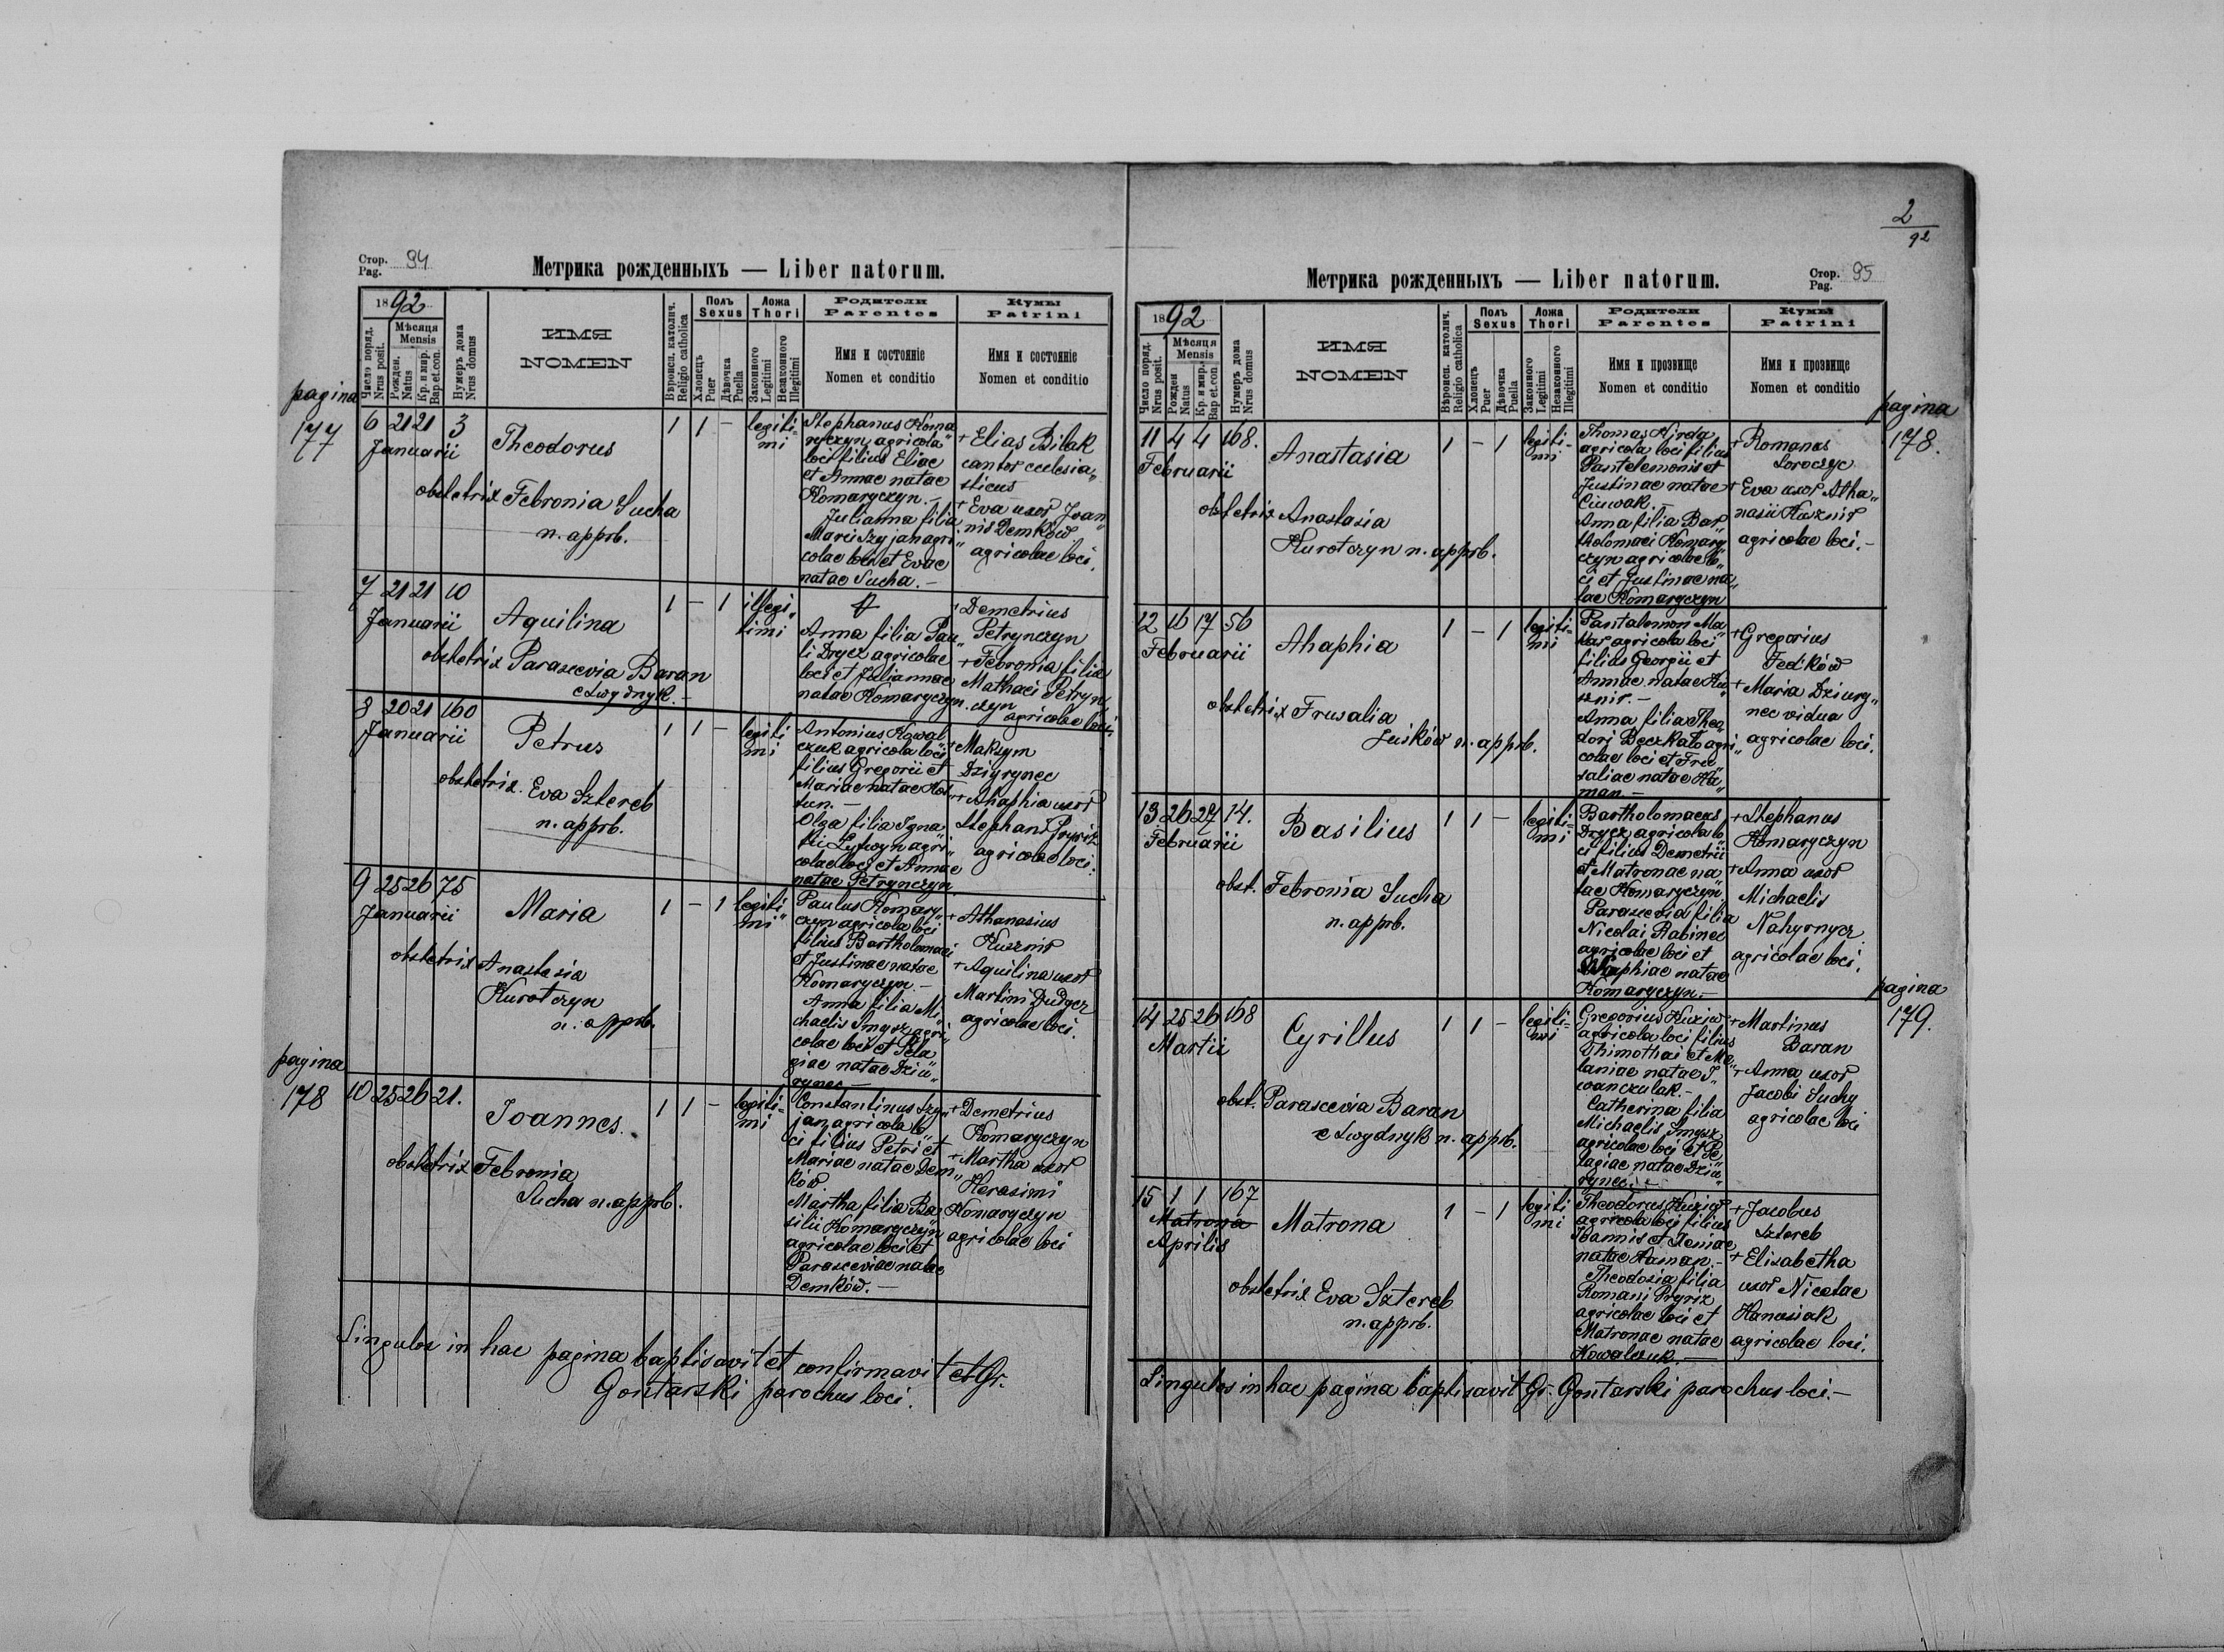 Стор. Pag. 94
Метрика рожденныхъ — Liber natorum.
1892
Число поряд. Nrus posit.
Мѣсяця Mensis
Рожден. Natus
Кр. и мир. Bap.et.con.
Нумеръ дома Nrus domus
ИМЯ
NOMEN
Вѣроисп. католич. Religio catholica
Полъ Sexus
Хлопець Puer
Дѣвочка Puella
Ложа Thori
Законного Legitimi
Незаконного Illegitimi
Родители
Parentes
Имя и состояніе
Nomen et conditio
Кумы
Patrini
Имя и состояніе
Nomen et conditio
pagina
177
6 21 21 3
Januarii
Theodorus
obstetrix Febronia Sucha
n. apprb.
1 1 –
legiti-
mi
Stephanus Koma
ryczyn agricola
loci filius Eliae
et Annae natae
Komaryczyn. –
Julianna filia
Marii Szyjan agri„
colae loci et Evae
natae Sucha. –
+ Elias Bilak
cantor ecclesia„
sticus
+ Eva uxor Joan„
nis Demków
agricolae loci.
7 21 21 10
Januarii
Aquilina
obstetrix Parascevia Baran
c Lwydnyk. –
1 – 1
illegi„
timi
Anna filia Pau„
li Dycz agricolae
loci et Juliannae
natae Komaryczyn.
+ Demetrius
Petrynczyn
+ Febronia filia
Mathaei Petryn„
czyn
agricolae loci.
8 20 21 160
Januarii
Petrus
obstetrix. Eva Sztereb
n. apprb.
1 1 –
legiti
mi
Antonius Kowal
czuk agricola loci
filius Gregorii et
Mariae natae Kos
tun. –
Olga filia Igna
tii Lytwyn agri„
colae loci et Annae
natae Petrynczyn.
+ Maksym
Dzigrynec
+ Ahaphia uxor
Stephani Pryriz
agricolae loci.
9 25 26 75
Januarii
Maria
obstetrix Anastasia
Kurotczyn
n. apprb.
1 – 1
legiti
mi
Paulus Komary„
czyn agricola loci
filius Bartholomaei
et Justinae natae
Komaryczyn. –
Anna filia Mi
chaelis Smysz agri„
colae loci et Pela
giae natae Dziu„
rynec –
+ Athanasius
Kusznir
+ Aquilina uxor
Martini Dudycz
agricolae loci.
pagina
178
10 25 26 21.
Joannes.
obstetrix Febronia
Sucha n. apprb.
1 1 –
legiti-
mi
Constantinus Szy„
jan agricola lo
ci filius Petri et
Mariae natae Dem„
ków
Martha filia Ba
silii Komaryczyn
agricolae loci et
Parasceviae natae
Demków. –
+ Demetrius
Komaryczyn
+ Martha uxor
Harasimi
Komaryczyn
agricolae loci
Singulos in hac pagina baptisavit et confirmavit et Gr.
Gontarski parochus loci.
2
92
Метрика рожденныхъ — Liber natorum.
Стор. Pag. 95
1892
Число поряд. Nrus posit.
Мѣсяця Mensis
Рожден Natus
Кр. и мир. Bap et.con.
Нумеръ дома Nrus domus
ИМЯ
NOMEN
Вѣроисп. католич. Religio catholica
Полъ Sexus
Хлопець Puer
Дѣвочка Puella
Ложа Thori
Законного Legitimi
Незаконного Illegitimi
Родители
Parentes
Имя и прозвище
Nomen et conditio
Кумы
Patrini
Имя и прозвище
Nomen et conditio
pagina
178.
11 4 4 168.
Februarii
Anastasia
obstetrix Anastasia
Kurotczyn n. apprb.
1 – 1
legiti-
mi
Thomas Hirda
agricola loci filius
Pantelemonis et
Justinae natae
Ciuwak. –
Anna filia Bar
tholomaei Komary
czyn agricolae lo„
ci et Justinae na„
tae Komaryczyn
+ Romanus
Soroczyc
+ Eva uxor Atha„
nasii Kusznir
agricolae loci. –
12 16 17 56
Februarii
Ahaphia
obstetrix Frusalia
Juśków n. apprb.
1 – 1
legiti-
mi
Pantalemon Ma
kar agricola loci
filius Georgii et
Annae natae Ku„
sznir. –
Anna filia Theo
dori Beczkalo agri„
colae loci et Fru
saliae natae Ha„
man. –
+ Gregorius
Fedków
+ Maria Dziury„
nec vidua
agricolae loci.
13 26 27 14.
Februarii
Basilius
obst. Febronia Sucha
n. apprb.
1 1 –
legiti-
mi
Bartholomaeus
Drycz agricola lo„
ci filius Demetrii
et Matronae na
tae Komaryczyn„
Parascevia filia
Nicolai Rabinec
agricolae loci et
Ahaphiae natae
Komaryczyn. –
+ Stephanus
Komaryczyn
+ Anna uxor
Michaelis
Nahyrnycz
agricolae loci.
pagina
179.
14 25 26 168
Martii
Cyrillus
obst. Parascevia Baran
c Lwydnyk n. apprb.
1 1 –
legiti-
mi
Gregorius Kuziw
agricola loci filius
Thimothai et Me„
laniae natae I„
wanczulak. –
Catherina filia
Michaelis Smysz
agricolae loci et Pe
lagiae natae Dziu„
rynec. –
+ Martinus
Baran
+ Anna uxor
Jacobi Suchy
agricolae loci
15 1 1 167
Matrona
Aprilis
Matrona
obstetrix Eva Sztereb
n. apprb.
1 – 1
legiti
mi
Theodorus Kuziw
agricola loci filius
Joannis et Xeniae
natae Haman. –
Theodosia filia
Romani Pryriz
agricolae loci et
Matronae natae
Kowalczuk. –
+ Jacobus
Sztereb
+ Elisabetha
uxor Nicetae
Hanusiak
agricolae loci.
Singulos in hac pagina baptisavit Gr. Gontarski parochus loci. –